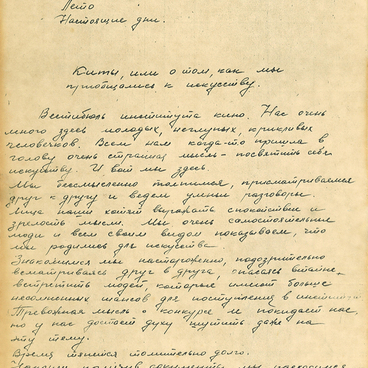 Лето
Настоящие дни.
Киты, или о том, как мы
приобщались к искусству.
Вестибюль института кино. Нас очень
много здесь молодых, неглупых, крикливых
человечков. Всем нам когда-то пришла в
голову очень странная мысль - посвятить себя
искусству. И вот мы здесь.
Мы бессмысленно толпимся, присматриваемся
друг к другу и ведем умные разговоры.
Лица наши хотят выражать спокойствие и
зрелость мысли. Мы очень самостоятельные
люди и всем своим видом показываем, что
мы родились для искусства.
Знакомимся мы настороженно, подозрительно
всматриваясь друг в друга, опасаясь втайне
встретить людей, которые имеют больше
несомненных шансов для поступления в институт.
Тревожная мысль о конкурсе не покидает нас,
но у нас достает духу шутить даже на
эту тему.
Время тянется томительно долго.